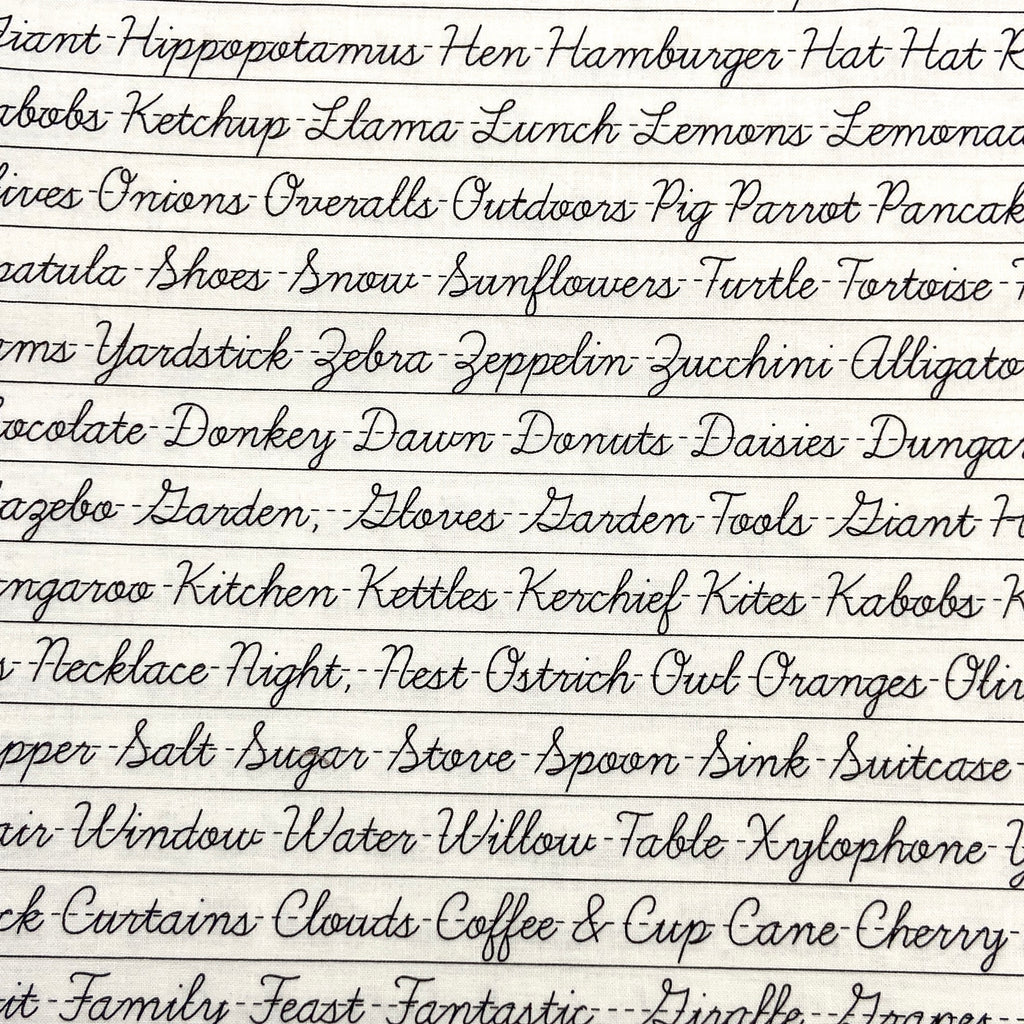 Giant Hippopotamus Hen Hamburger Hat Hat
Kabobs Ketchup Llama Lunch Lemons Lemonad
lives Onions Overalls Outdoors Pig Parrot Pancak
patula Shoes Snow Sunflowers Turtle Tortoise
rms Yardstick Zebra Zeppelin Zucchini Alligato
hocolate Donkey Dawn Donuts Daisies Dungar
Gazebo Garden, Gloves Garden Tools Giant H
ngaroo Kitchen Kettles Kerchief Kites Kabobs K
s Necklace Night, Nest Ostrich Owl Oranges Oliv
pper Salt Sugar Stove Spoon Sink Suitcase
air Window Water Willow Table Xylophone Y
ck Curtains Clouds Coffee & Cup Cane Cherry
it Family Feast Fantastic Giraffe Grapes